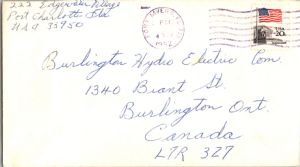 222 Edgewater Village
Port Charlotte Fla
USA 33950
PM
1982
USA 20c
Burlington Hydro Electric Com.
1340 Brant St.
Burlington Ont.
Canada
L7R 3Z7